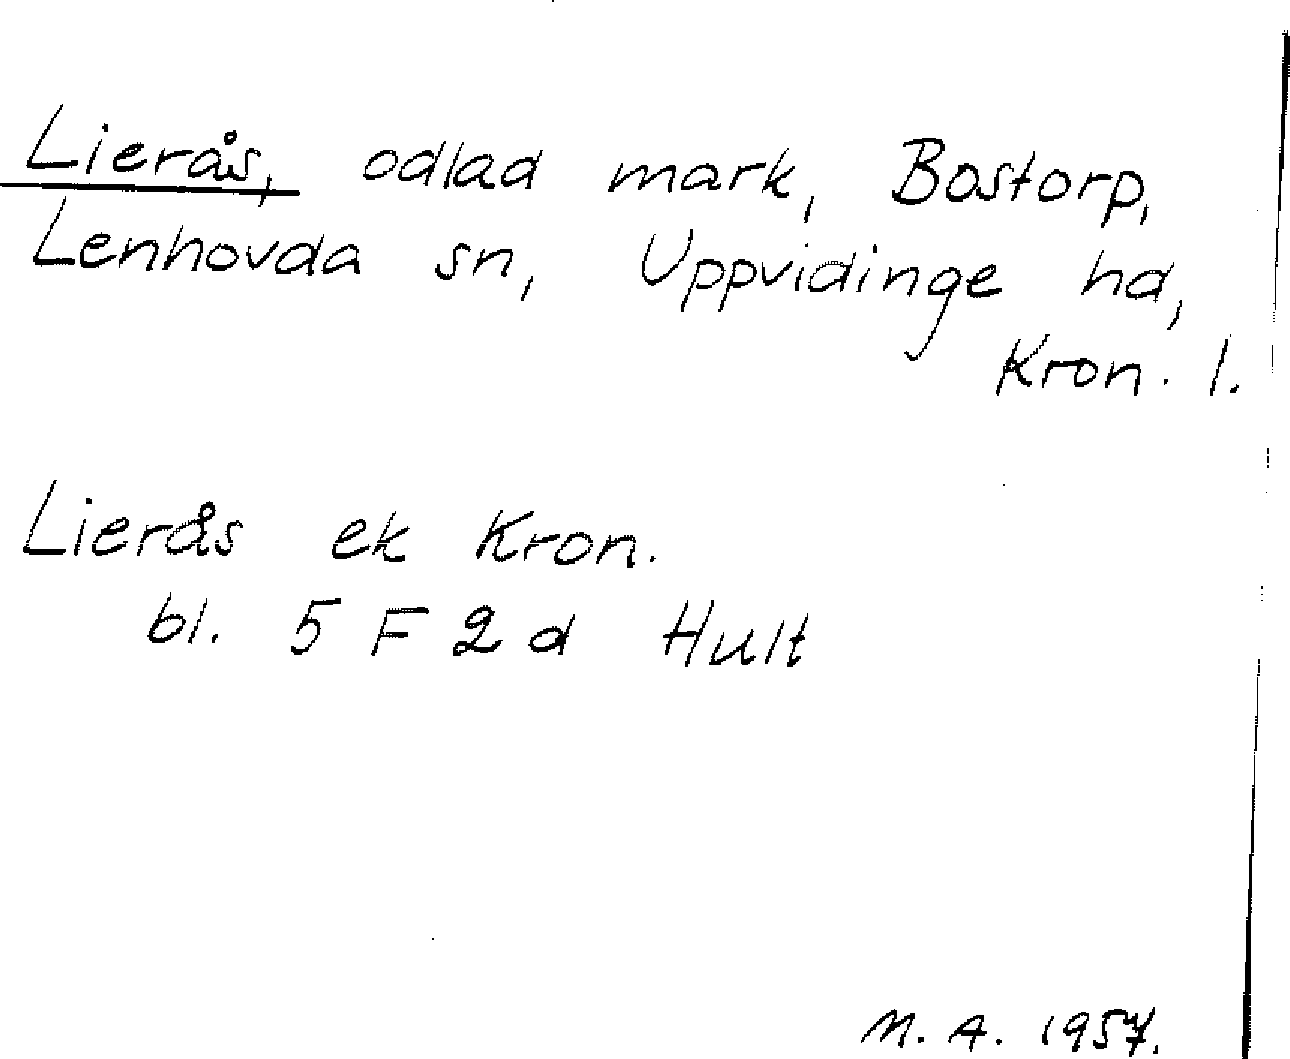 Lierås, odlad mark, Bostorp,
Lenhovda sn, Uppvidinge hd,
Kron. l.
Lierås ek Kron.
bl. 5 F 2 d Hult
M. A. 1957.